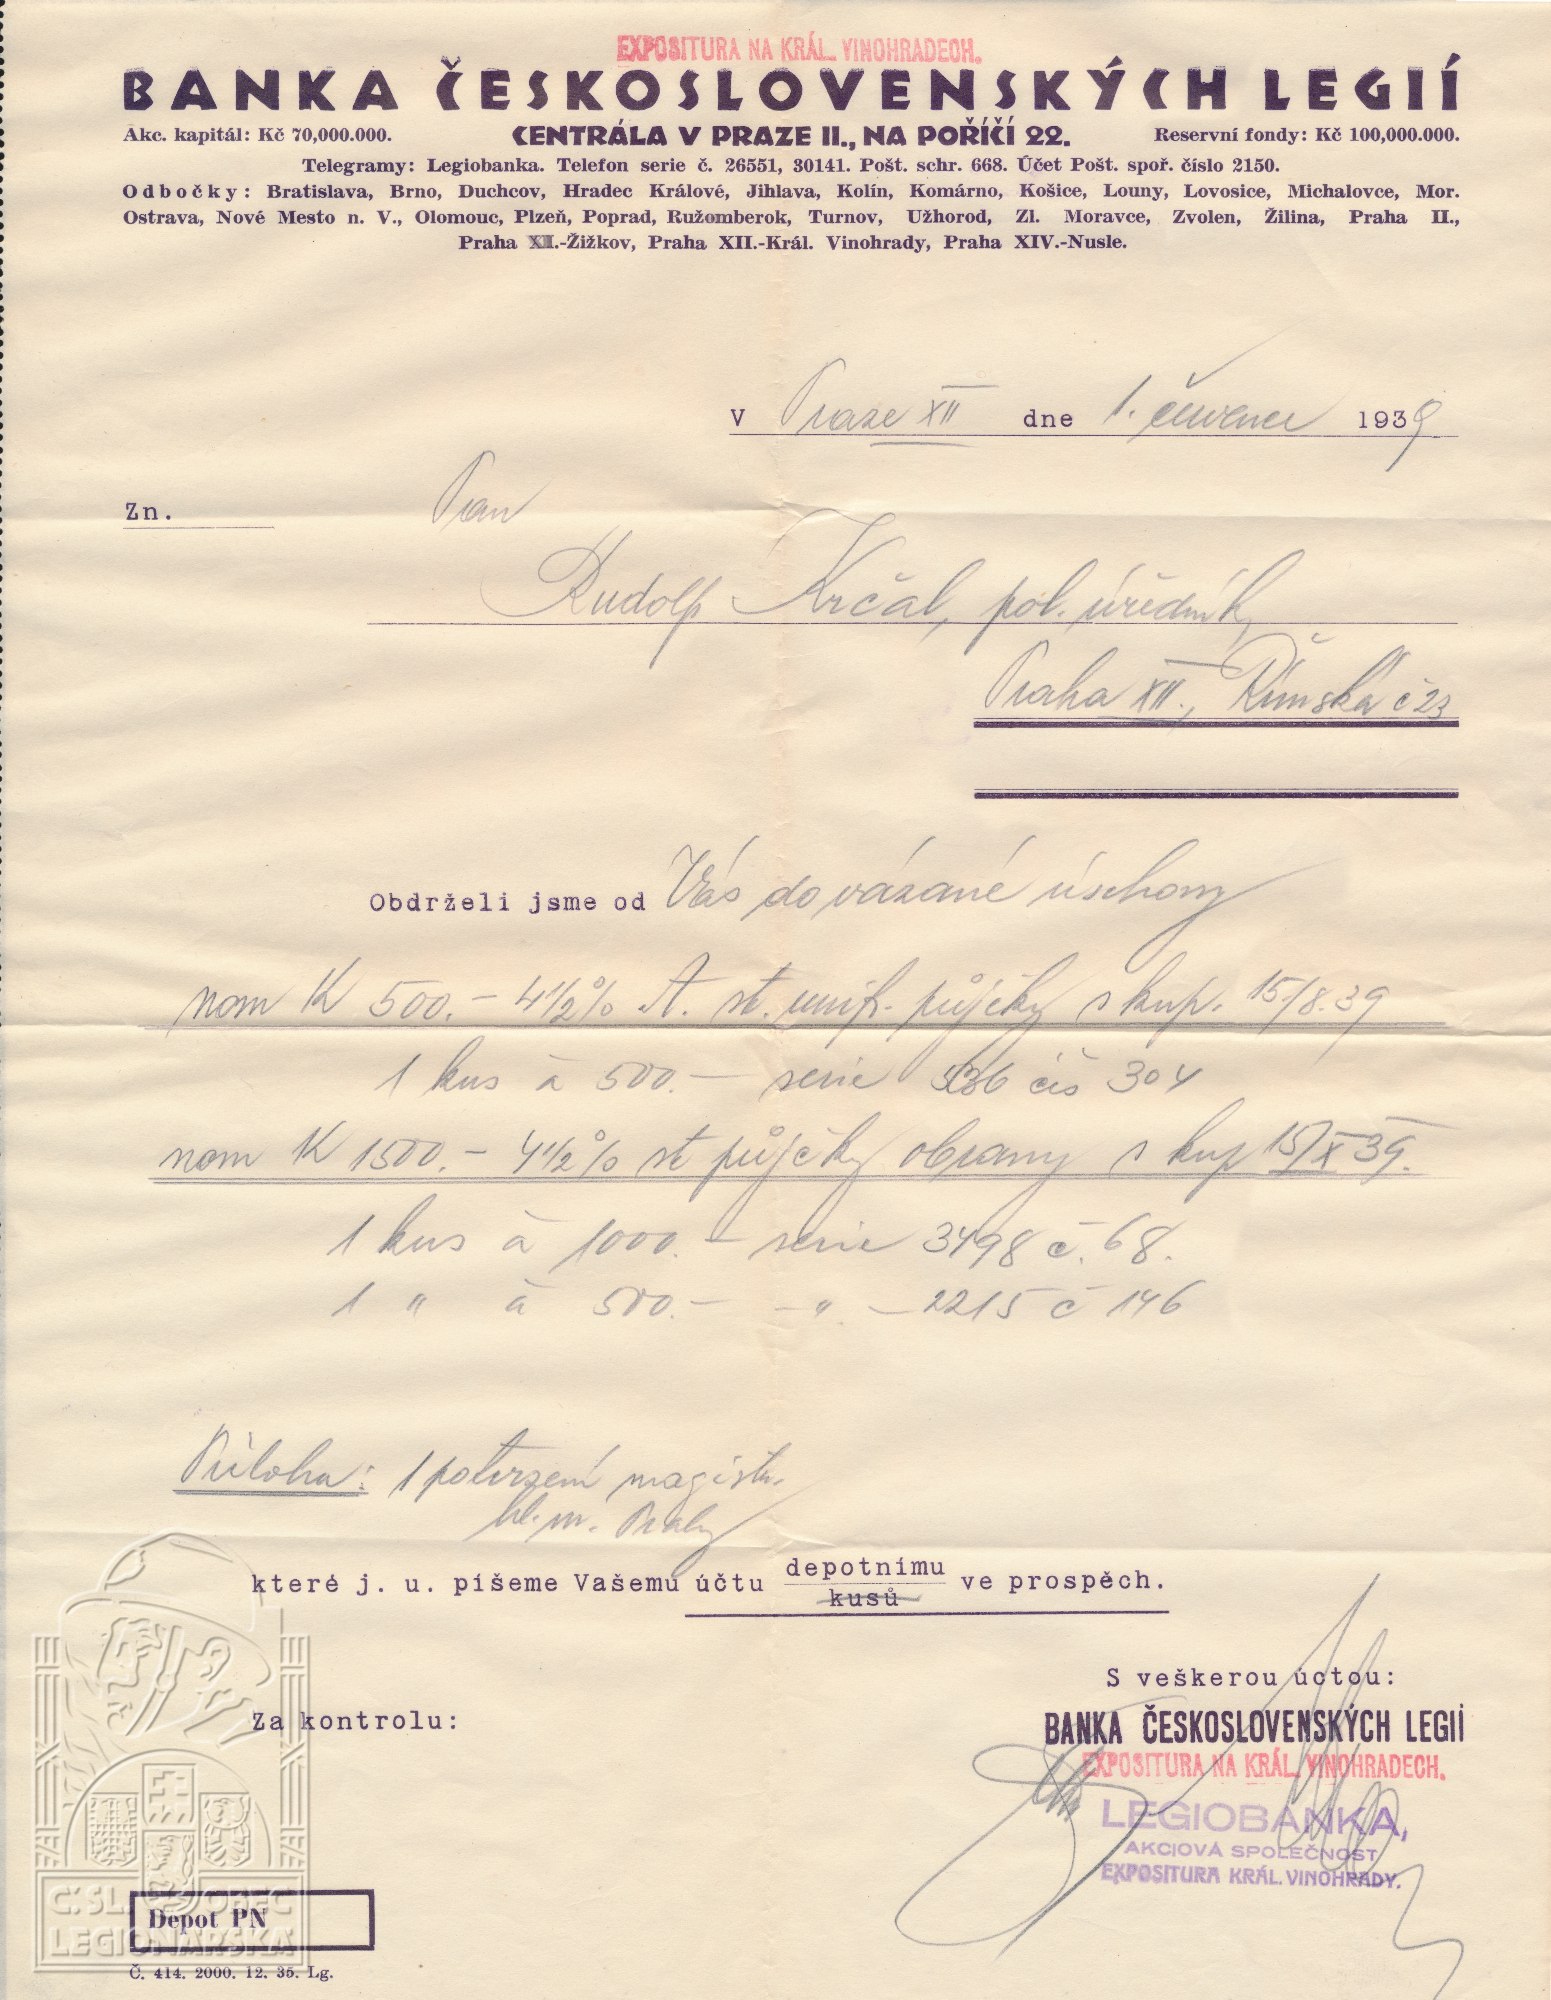 EXPOSITURA NA KRÁL. VINOHRADECH.
BANKA ČESKOSLOVENSKÝCH LEGIÍ
Akc. kapitál: Kč 70,000.000. CENTRÁLA V PRAZE II., NA POŘÍČÍ 22. Reservní fondy: Kč 100,000.000.
Telegramy: Legiobanka. Telefon serie č. 26551, 30141. Pošt. schr. 668. Účet Pošt. spoř. číslo 2150.
Odbočky: Bratislava, Brno, Duchcov, Hradec Králové, Jihlava, Kolín, Komárno, Košice, Louny, Lovosice, Michalovce, Mor.
Ostrava, Nové Mesto n. V., Olomouc, Plzeň, Poprad, Ružomberok, Turnov, Užhorod, Zl. Moravce, Zvolen, Žilina, Praha II.,
Praha XI.-Žižkov, Praha XII.-Král. Vinohrady, Praha XIV.-Nusle.
V Praze XII dne 1. července 1939
Zn.
Pan
Rudolf Krčal, pol. úředník,
Praha XII., Římská č 23
Obdrželi jsme od Vás do vázané úschovy
nom K 500.- 4 1/2 % A. st. unif. půjčky s kup. 15/8.39
1 kus à 500.- serie 536 čís 304
nom K 1500.- 4 1/2 % st půjčky obrany s kup 15/X 39.
1 kus à 1000.- serie 3498 č. 68.
1 " à 500.- - " - 2215 č 146
Příloha: 1 potvrzení magistr.
hl. m. Prahy
které j. u. píšeme Vašemu účtu depotnímu ve prospěch.
kusů
S veškerou úctou:
Za kontrolu:
BANKA ČESKOSLOVENSKÝCH LEGIÍ
EXPOSITURA NA KRÁL. VINOHRADECH.
LEGIOBANKA,
AKCIOVÁ SPOLEČNOST
EXPOSITURA KRÁL. VINOHRADY.
Č. SL. OBEC
LEGIONÁŘSKÁ
Depot PN
Č. 414. 2000. 12. 35. Lg.